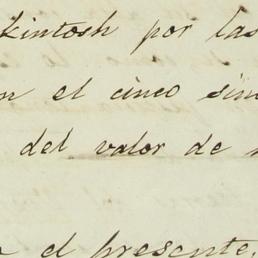 kintosh por las
n el cinco sin
del valor de
el presente.